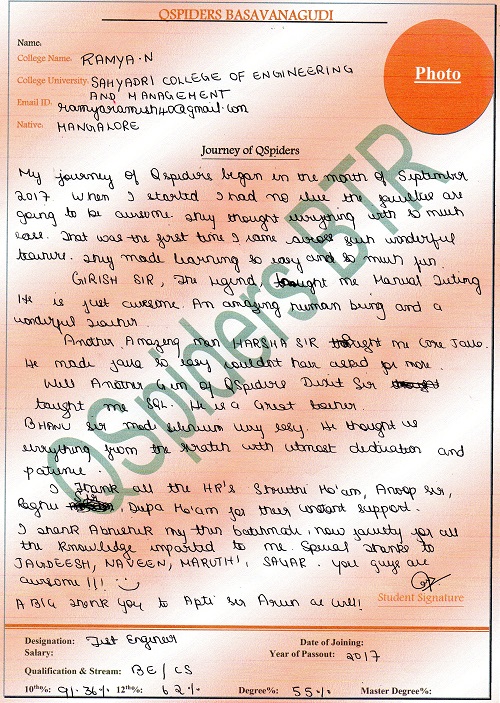 QSPIDERS BASAVANAGUDI
Name.
College Name: RAMYA.N
College University: SAHYADRI COLLEGE OF ENGINEERING
AND MANAGEMENT
Email ID: ramyaramesh40@gmail.com
Native: MANGALORE
Photo
Journey of QSpiders
My journey of QSpiders began in the month of September
2017. When I started I had no clue the faculties are
going to be awesome. They thought everything with so much
ease. That was the first time I came across such wonderful
trainers. They made learning so easy and so much fun.
GIRISH SIR, The Legend, taught me Manual Testing
He is just awesome. An amazing human being and a
wonderful teacher.
Another Amazing man HARSHA SIR taught me Core Java.
He made java so easy couldn't have asked for more.
Well Another Gem of QSpiders Dixit Sir
taught me SQL. He is a Great trainer.
BHANU sir made selenium very easy. He thought us
everything from the scratch with utmost dedication and
patience.
I Thank all the HR's Shruthi Ma'am, Anoop sir,
Raghu Sir, Dipa Ma'am for their constant support.
I thank Abhishek my then batchmate, now faculty for all
the knowledge imparted to me. Special thanks to
JAGDEESH, NAVEEN, MARUTHI, SAGAR. you guys are
awesome!!!
A BIG thank you to Apti sir Arun as well!
Student Signature
QSpiders BTR
Designation: Test Engineer Date of Joining:
Salary: Year of Passout: 2017
Qualification & Stream: BE/CS
10th%: 91.36% 12th%: 62% Degree%: 55% Master Degree%: